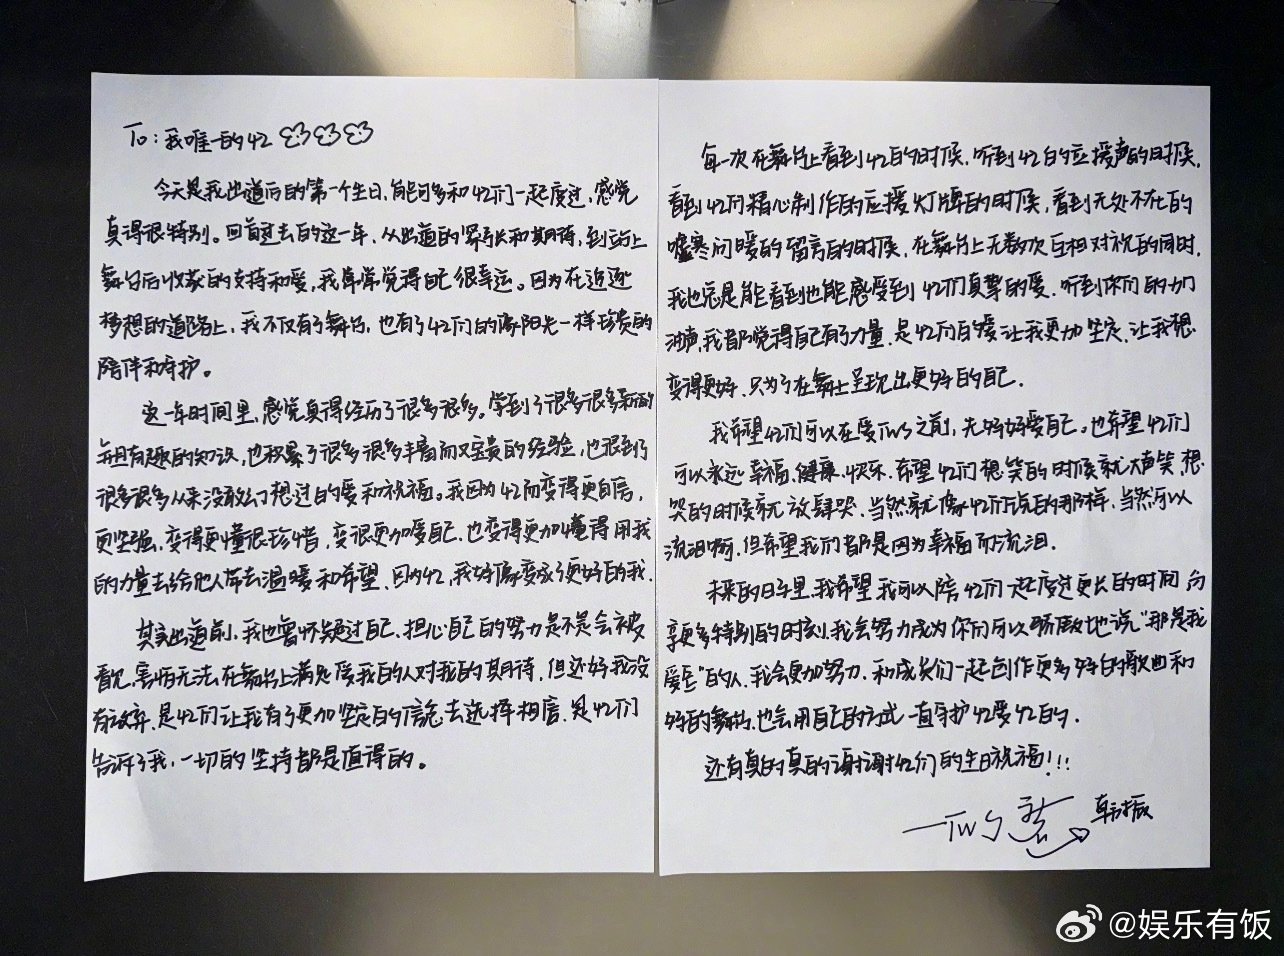 To：我唯一的42
今天是我出道后的第一个生日，能够和42们一起度过，感觉
真得很特别。回首过去的这一年，从出道的紧张和期待，到站上
舞台后收获的支持和爱，我常常觉得自己很幸运。因为在追逐
梦想的道路上，我不仅有了舞台，也有了42们的像阳光一样珍贵的
陪伴和守护。
这一年时间里，感觉真得经历了很多很多。学到了很多很多新的
并且有趣的知识，也积累了很多很多丰富而又宝贵的经验，也得到了
很多很多从来没敢幻想过的爱和祝福。我因为42而变得更自信，
更坚强，变得更懂得珍惜，变得更加爱自己，也变得更加懂得用我
的力量去给他人带去温暖和希望，因为42，我好像变成了更好的我.
其实出道前，我也曾怀疑过自己，担心自己的努力是不是会被
看见，害怕无法在舞台上满足爱我的人对我的期待，但还好我没
有放弃，是42们让我有了更加坚定的信念去选择相信，是42们
告诉了我，一切的坚持都是值得的。
每一次在舞台上看到42的时候，听到42的应援声的时候，
看到42们精心制作的应援灯牌的时候，看到无处不在的
嘘寒问暖的留言的时候，在舞台上无数次互相对视的同时，
我也总是能看到也能感受到42们真挚的爱，听到你们的
声，我都觉得自己有了力量，是42们的爱让我更加坚定，让我想
变得更好，只为了在舞台呈现出更好的自己.
我希望42们可以在爱TWS之前，先好好爱自己。也希望42们
可以永远幸福、健康、快乐，希望42们想笑的时候就大声笑，想
哭的时候就放肆哭，当然就像42们说的那样，当然可以
流泪啊，但希望我们都是因为幸福而流泪.
未来的日子里，我希望我可以陪42们一起度过更长的时间，共
享更多特别的时刻，我会努力成为你们可以骄傲地说“那是我
爱豆”的人，我会更加努力，和成员们一起创作更多好的歌曲和
好的舞台，也会用自己的方式一直守护42爱42的.
还有真的真的谢谢42们的生日祝福!!!
TWS 韩振
@娱乐有饭